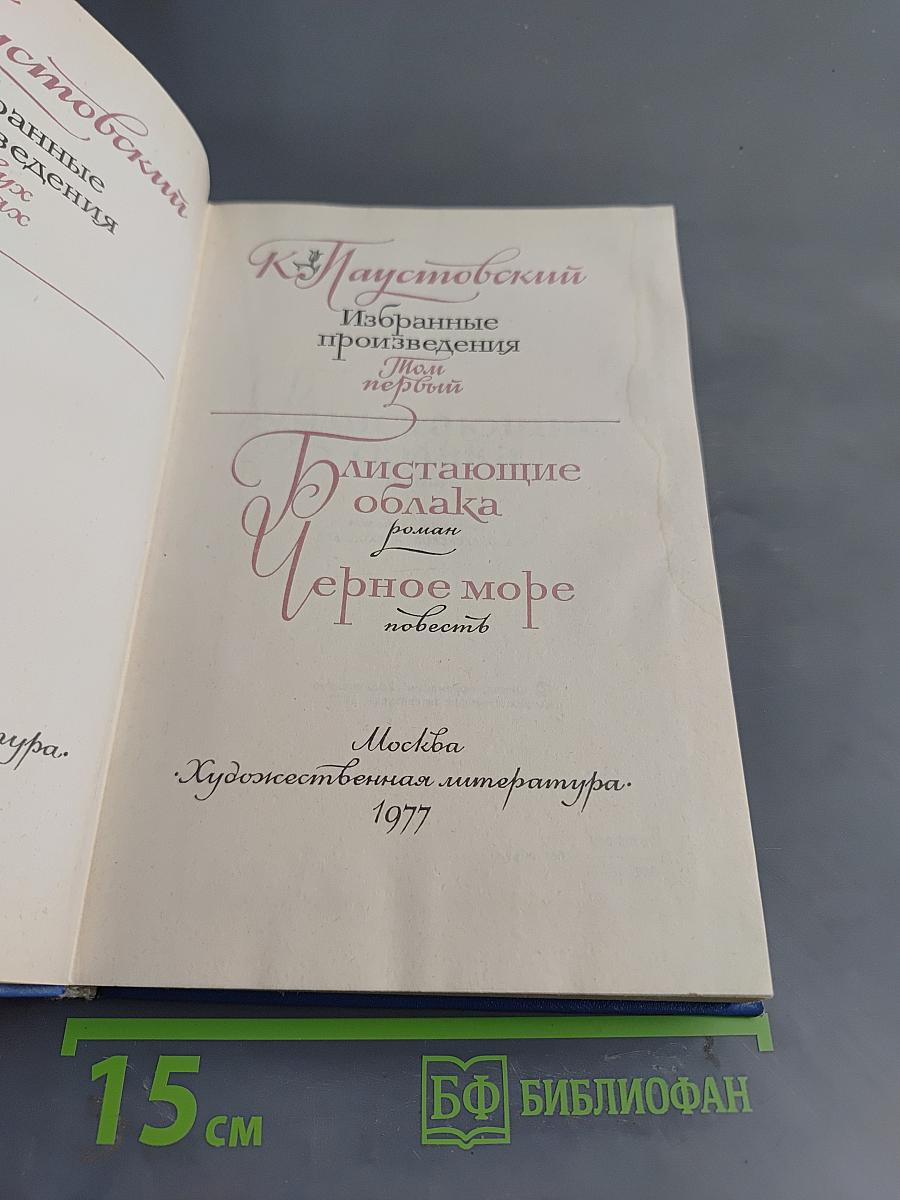 К. Паустовский
Избранные
произведения
Том
первый
Блистающие
облака
роман
Черное море
повесть
Москва
·Художественная литература·
1977
15 см
БФ БИБЛИОФАН